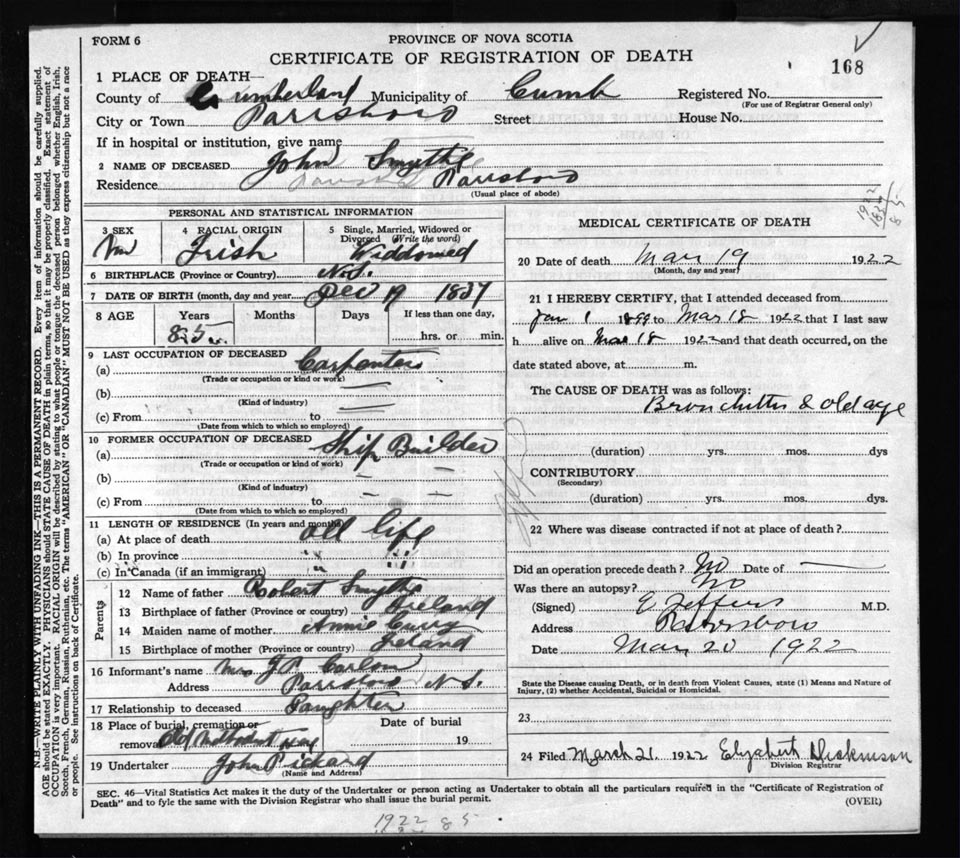 FORM 6
PROVINCE OF NOVA SCOTIA
CERTIFICATE OF REGISTRATION OF DEATH
168
1 PLACE OF DEATH—
County of Cumberland Municipality of Cumb Registered No.
(For use of Registrar General only)
City or Town Parrsboro Street House No.
If in hospital or institution, give name
2 NAME OF DECEASED John Smythe
Residence Parrsboro
(Usual place of abode)
1922
85
PERSONAL AND STATISTICAL INFORMATION
3 SEX M
4 RACIAL ORIGIN Irish
5 Single, Married, Widowed or Divorced (Write the word) Widdowed
6 BIRTHPLACE (Province or Country) N.S.
7 DATE OF BIRTH (month, day and year) Dec 19 1837
8 AGE Years Months Days If less than one day,
85 hrs. or min.
9 LAST OCCUPATION OF DECEASED
(a) Carpenter
(Trade or occupation or kind or work)
(b)
(Kind of industry)
(c) From to
(Date from which to which so employed)
10 FORMER OCCUPATION OF DECEASED
(a) Ship Builder
(Trade or occupation or kind of work)
(b)
(Kind of industry)
(c) From to
(Date from which to which so employed)
11 LENGTH OF RESIDENCE (In years and months)
(a) At place of death all life
(b) In province " "
(c) In Canada (if an immigrant) " "
Parents
12 Name of father Robert Smythe
13 Birthplace of father (Province or country) Ireland
14 Maiden name of mother Annie Curry
15 Birthplace of mother (Province or country) Ireland
16 Informant's name Mrs J.P. Carlow
Address Parrsboro N.S.
17 Relationship to deceased Daughter
18 Place of burial, cremation or removal Old Methodist
Date of burial
19
19 Undertaker John Pickard
(Name and Address)
MEDICAL CERTIFICATE OF DEATH
20 Date of death Mar 19 1922
(Month, day and year)
21 I HEREBY CERTIFY, that I attended deceased from
Jan 1 1899 to Mar 18 1922 that I last saw
h alive on Mar 18 1922 and that death occurred, on the
date stated above, at m.
The CAUSE OF DEATH was as follows:
Bronchitis & old age
(duration) yrs. mos. dys
CONTRIBUTORY
(Secondary)
(duration) yrs. mos. dys.
22 Where was disease contracted if not at place of death?
Did an operation precede death? No Date of —
Was there an autopsy? No
(Signed) E Jeffers M.D.
Address Parrsboro
Date Mar 20 1922
State the Disease causing Death, or in death from Violent Causes, state (1) Means and Nature of
Injury, (2) whether Accidental, Suicidal or Homicidal.
23
24 Filed March 21 1922 Elizabeth Dickinson
Division Registrar
SEC. 46—Vital Statistics Act makes it the duty of the Undertaker or person acting as Undertaker to obtain all the particulars required in the "Certificate of Registration of
Death" and to fyle the same with the Division Registrar who shall issue the burial permit.
(OVER)
1922 85
N.B.—WRITE PLAINLY WITH UNFADING INK—THIS IS A PERMANENT RECORD. Every item of information should be carefully supplied.
AGE should be stated EXACTLY. PHYSICIANS should STATE CAUSE OF DEATH in plain terms, so that it may be properly classified. Exact statement of
OCCUPATION is very important. RACIAL ORIGIN will be described by stating to what people or tongue the deceased person belonged whether English, Irish,
Scotch, French, German, Russian, Ruthenian, etc. The terms "AMERICAN" OR "CANADIAN" MUST NOT BE USED as they express citizenship but not a race
or people. See instructions on back of Certificate.